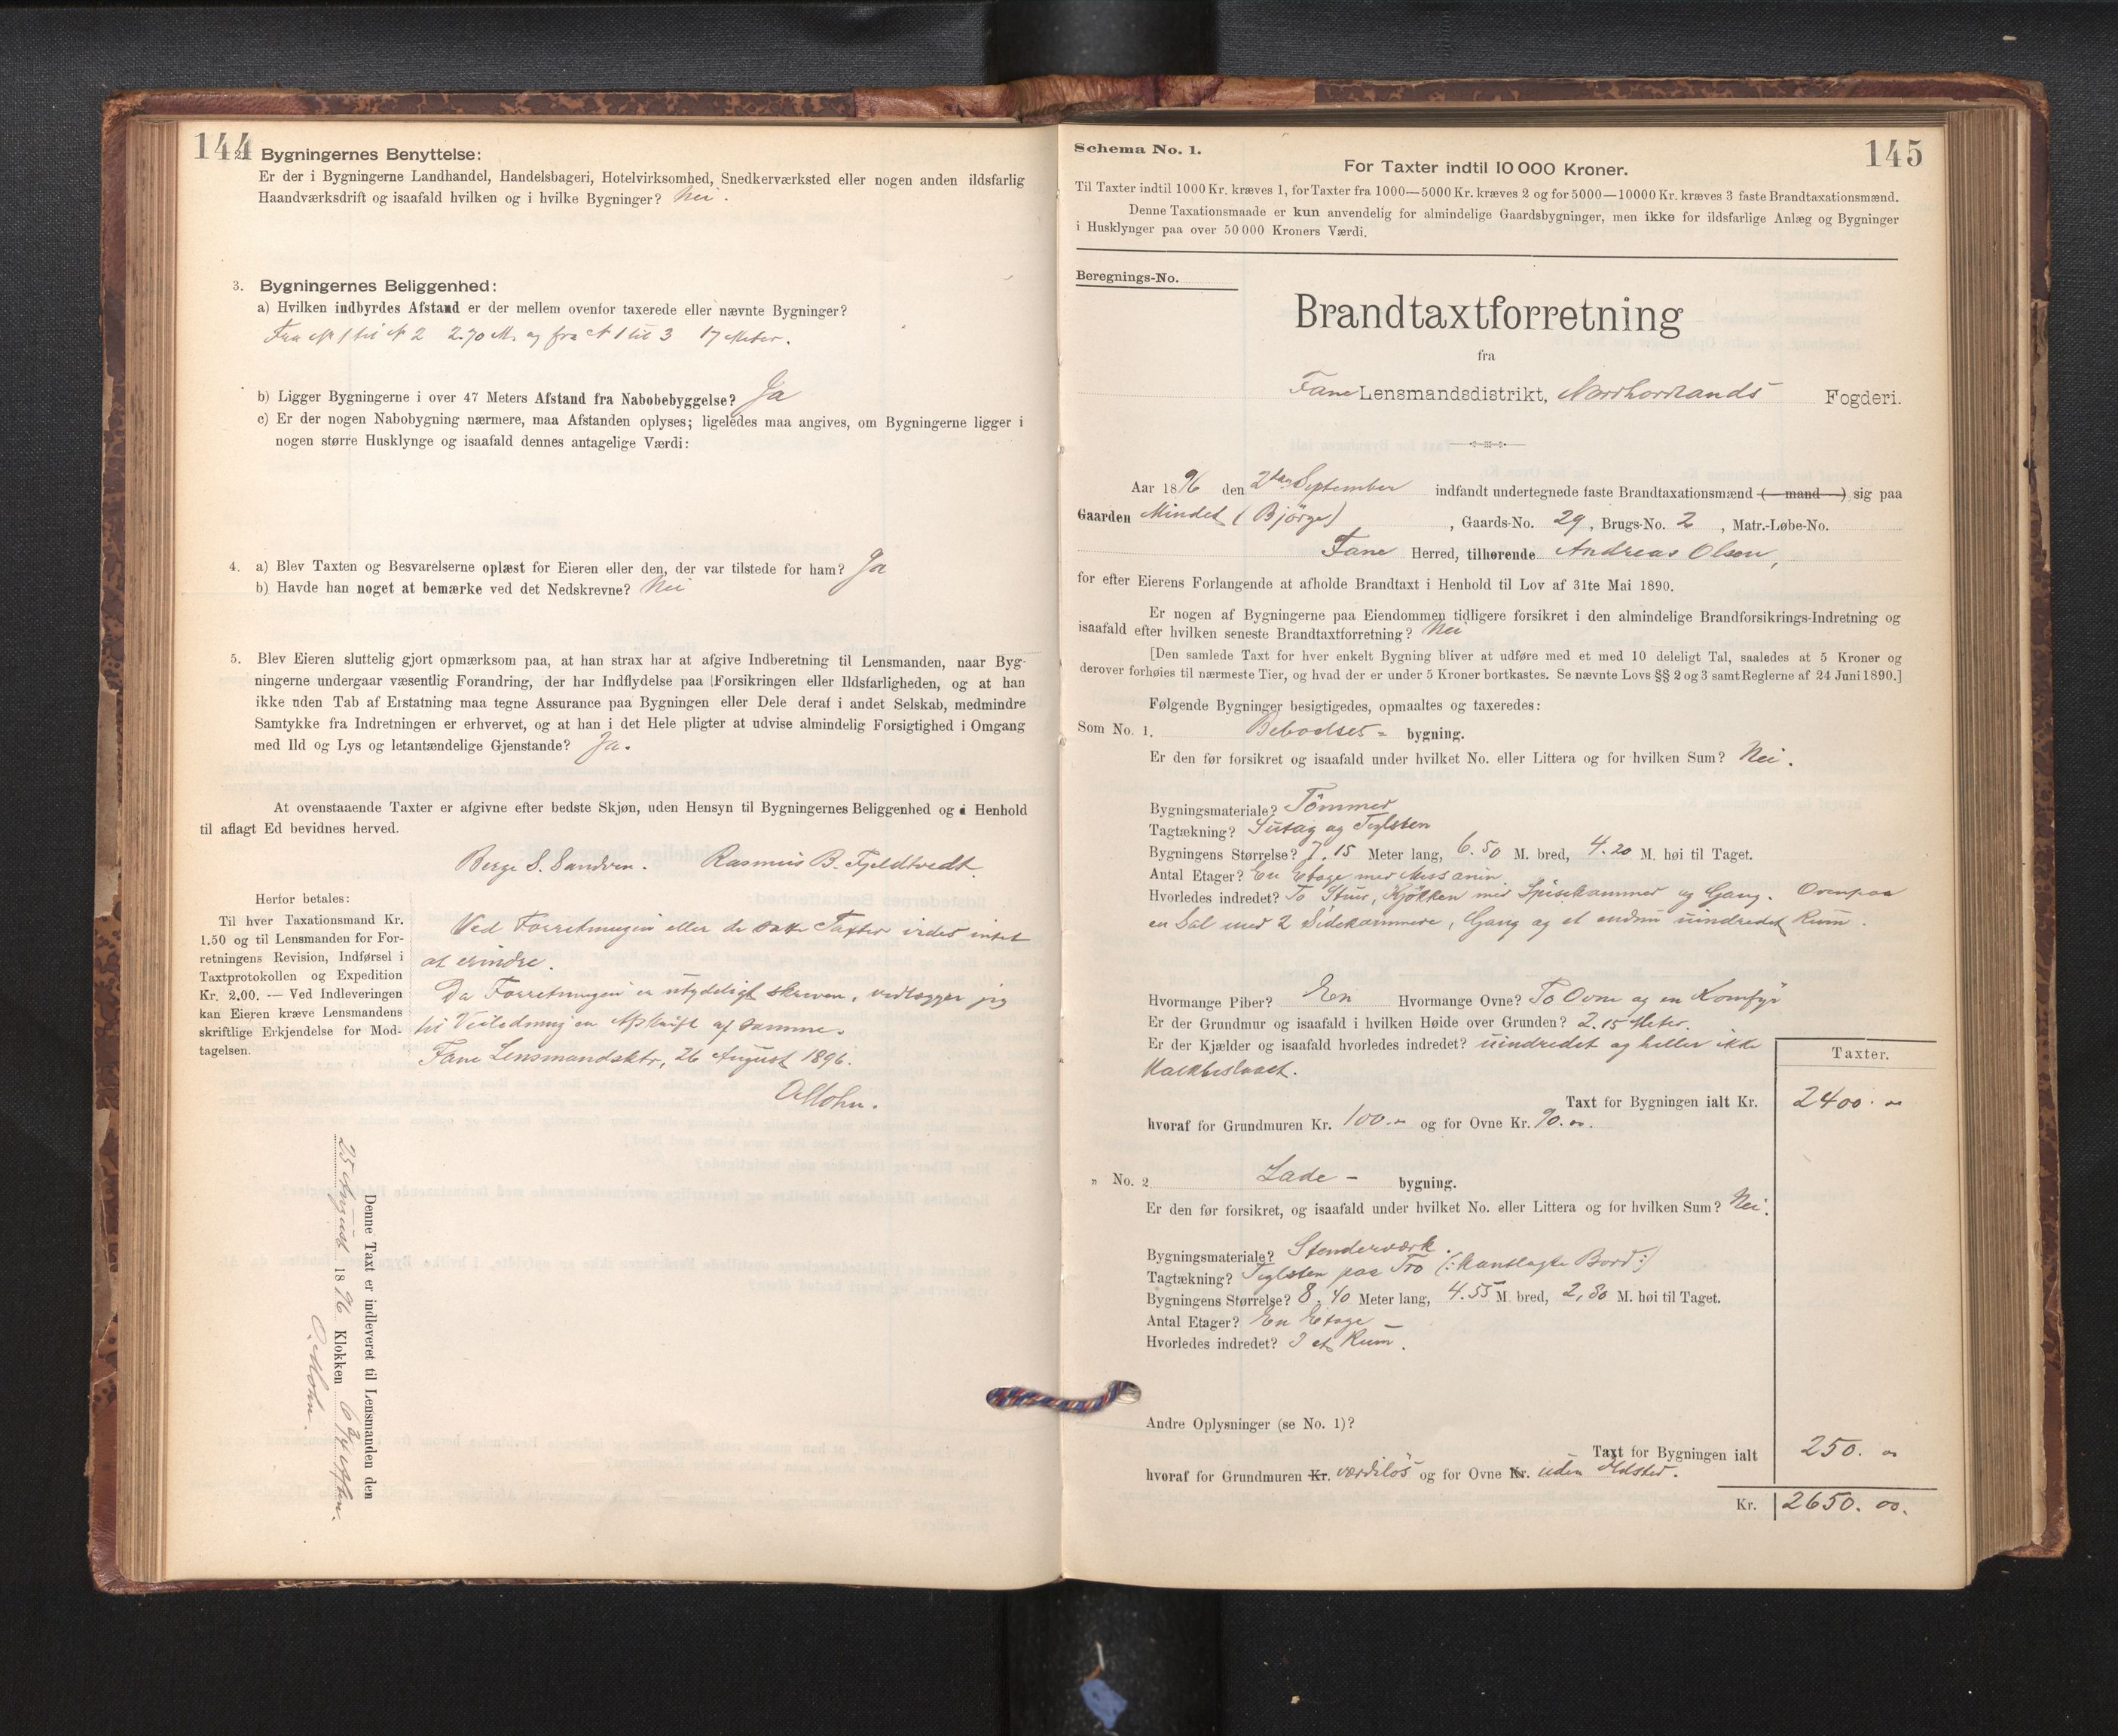 144
2. Bygningernes Benyttelse:
Er der i Bygningerne Landhandel, Handelsbageri, Hotelvirksomhed, Snedkerværksted eller nogen anden ildsfarlig
Haandværksdrift og isaafald hvilken og i hvilke Bygninger? Nei.
3. Bygningernes Beliggenhed:
a) Hvilken indbyrdes Afstand er der mellem ovenfor taxerede eller nævnte Bygninger?
Fra N 1 til N 2 2.70 M. og fra N 1 til 3 17 Meter.
b) Ligger Bygningerne i over 47 Meters Afstand fra Nabobebyggelse? Ja
c) Er der nogen Nabobygning nærmere, maa Afstanden oplyses; ligeledes maa angives, om Bygningerne ligger i
nogen større Husklynge og isaafald dennes antagelige Værdi:
4. a) Blev Taxten og Besvarelserne oplæst for Eieren eller den, der var tilstede for ham? Ja
b) Havde han noget at bemærke ved det Nedskrevne? Nei
5. Blev Eieren sluttelig gjort opmærksom paa, at han strax har at afgive Indberetning til Lensmanden, naar Byg-
ningerne undergaar væsentlig Forandring, der har Indflydelse paa Forsikringen eller Ildsfarligheden, og at han
ikke uden Tab af Erstatning maa tegne Assurance paa Bygningen eller Dele deraf i andet Selskab, medmindre
Samtykke fra Indretningen er erhvervet, og at han i det Hele pligter at udvise almindelig Forsigtighed i Omgang
med Ild og Lys og letantændelige Gjenstande? Ja.
At ovenstaaende Taxter er afgivne efter bedste Skjøn, uden Hensyn til Bygningernes Beliggenhed og i Henhold
til aflagt Ed bevidnes herved.
Berge S. Sandven. Rasmus B. Fjeldtvedt.
Herfor betales:
Til hver Taxationsmand Kr.
1.50 og til Lensmanden for For-
retningens Revision, Indførsel i
Taxtprotokollen og Expedition
Kr. 2.00. — Ved Indleveringen
kan Eieren kræve Lensmandens
skriftlige Erkjendelse for Mod-
tagelsen.
Ved Forretningen eller de satte Taxter vides intet
at erindre.
Da Forretningen er utydeligt skreven, vedlægger jeg
til Veiledning en Afskrift af samme.
Fane Lensmandsktr, 26 August 1896.
O Mohn.
Denne Taxt er indleveret til Lensmanden den
25 August 1896 Klokken 6 Eft.
O. Mohn.
145
Schema No. 1.
For Taxter indtil 10 000 Kroner.
Til Taxter indtil 1000 Kr. kræves 1, for Taxter fra 1000—5000 Kr. kræves 2 og for 5000—10000 Kr. kræves 3 faste Brandtaxationsmænd.
Denne Taxationsmaade er kun anvendelig for almindelige Gaardsbygninger, men ikke for ildsfarlige Anlæg og Bygninger
i Husklynger paa over 50 000 Kroners Værdi.
Beregnings-No.
Brandtaxtforretning
fra
Fane Lensmandsdistrikt, Nordhordlands Fogderi.
Aar 1896 den 2den September indfandt undertegnede faste Brandtaxationsmænd (—mand—) sig paa
Gaarden Mindet (Bjørge), Gaards-No. 29, Brugs-No. 2, Matr.-Løbe-No.
Fane Herred, tilhørende Andreas Olsen,
for efter Eierens Forlangende at afholde Brandtaxt i Henhold til Lov af 31te Mai 1890.
Er nogen af Bygningerne paa Eiendommen tidligere forsikret i den almindelige Brandforsikrings-Indretning og
isaafald efter hvilken seneste Brandtaxtforretning? Nei
[Den samlede Taxt for hver enkelt Bygning bliver at udføre med et med 10 deleligt Tal, saaledes at 5 Kroner og
derover forhøies til nærmeste Tier, og hvad der er under 5 Kroner bortkastes. Se nævnte Lovs §§ 2 og 3 samt Reglerne af 24 Juni 1890.]
Følgende Bygninger besigtigedes, opmaaltes og taxeredes:
Som No. 1. Beboelses- bygning.
Er den før forsikret og isaafald under hvilket No. eller Littera og for hvilken Sum? Nei.
Bygningsmateriale? Tömmer
Tagtækning? Sutag og Teglsten
Bygningens Størrelse? 7.15 Meter lang, 6.50 M. bred, 4.20 M. høi til Taget.
Antal Etager? En Etage med Messanin
Hvorledes indredet? To Stuer, Kjökken med Spisekammer og Gang. Ovenpaa
en Sal med 2 Sidekammere, Gang og et endnu uindredet Rum.
Hvormange Piber? En Hvormange Ovne? To Ovne og en Komfyr
Er der Grundmur og isaafald i hvilken Høide over Grunden? 2.15 Meter.
Er der Kjælder og isaafald hvorledes indredet? uindredet og heller ikke
Kalkbeslaaet.
Taxter.
Taxt for Bygningen ialt Kr. 2400. 00
hvoraf for Grundmuren Kr. 100.00 og for Ovne Kr. 90.00.
" No. 2 Lade- bygning.
Er den før forsikret, og isaafald under hvilket No. eller Littera og for hvilken Sum? Nei.
Bygningsmateriale? Stenderværk.
Tagtækning? Teglsten paa Tro (: Kantlagte Bord :)
Bygningens Størrelse? 8,40 Meter lang, 4.55 M. bred, 2,80 M. høi til Taget.
Antal Etager? En Etage
Hvorledes indredet? I et Rum.
Andre Oplysninger (se No. 1)?
Taxt for Bygningen ialt 250. 00
hvoraf for Grundmuren Kr. værdilös og for Ovne Kr. uden Ildsted.
Kr. 2650. 00.